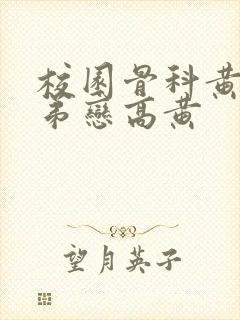 校園骨科黃
弟戀高黃
望月英子